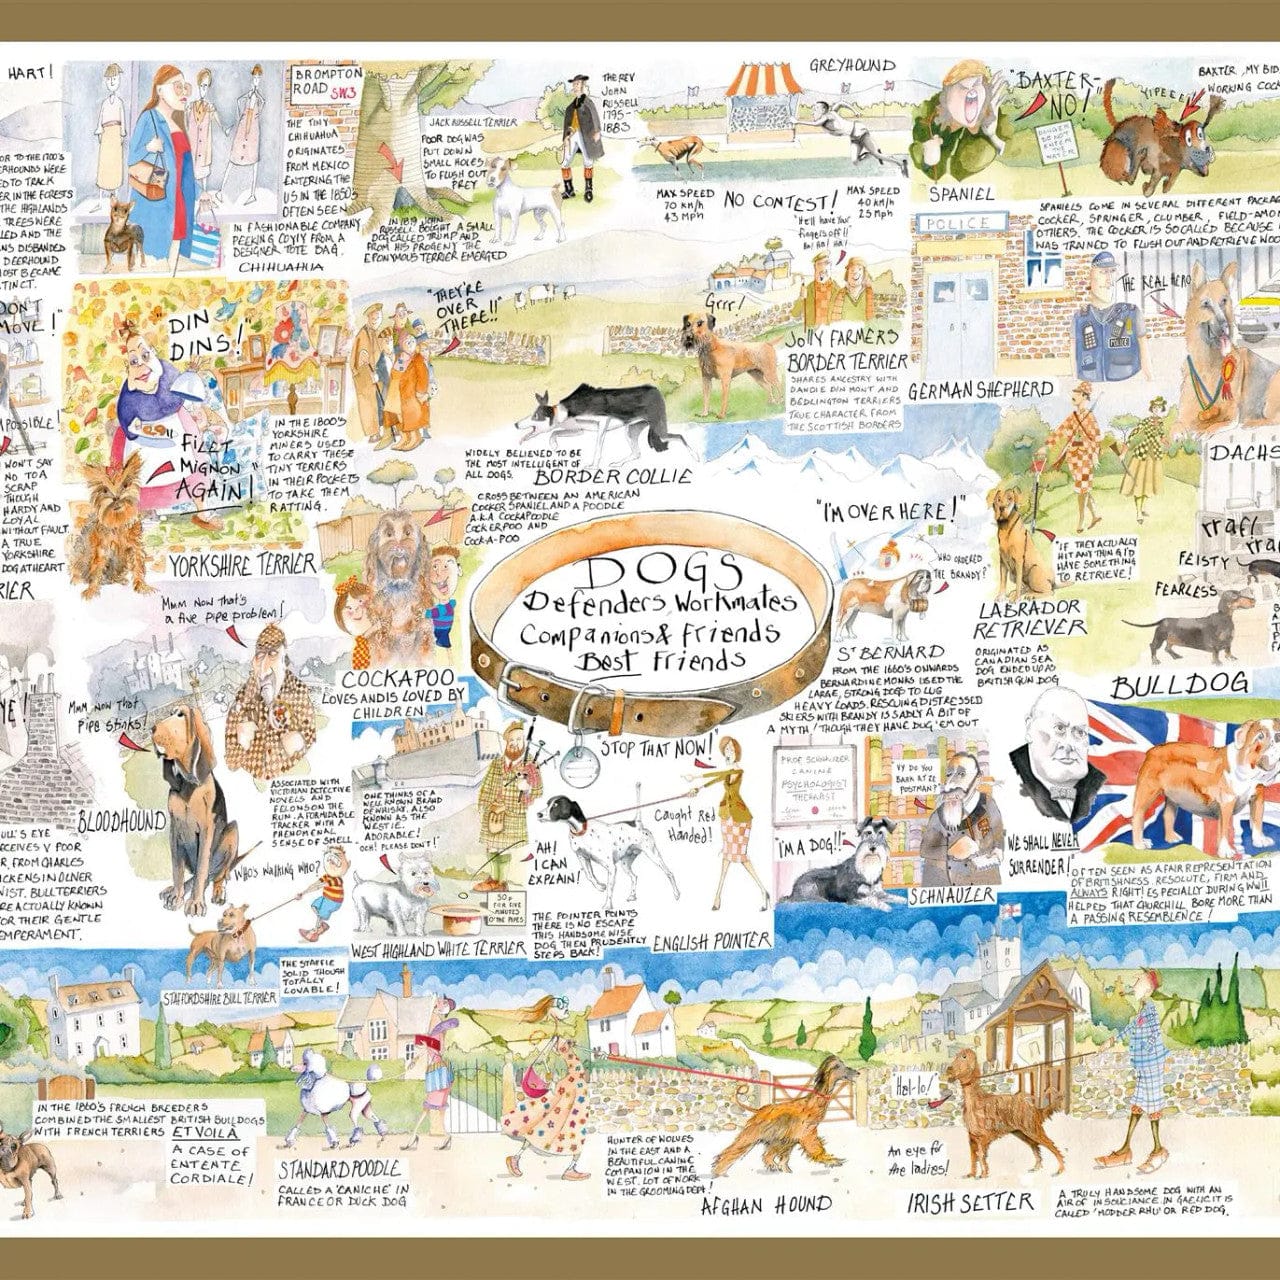 HART!
OR TO THE 1700'S
ERHOUNDS WERE
ED TO TRACK
ER IN THE FORESTS
THE HIGHLANDS
TREES WERE
LED AND THE
NS DISBANDED
DEERHOUND
MOST BECAME
TINCT.
BROMPTON
ROAD SW3
THE TINY
CHIHUAHUA
ORIGINATES
FROM MEXICO
ENTERING THE
US IN THE 1850'S
OFTEN SEEN
IN FASHIONABLE COMPANY
PEEKING COYLY FROM A
DESIGNER TOTE BAG.
CHIHUAHUA
JACK RUSSELL TERRIER
POOR DOG WAS
PUT DOWN
SMALL HOLES
TO FLUSH OUT
PREY
THE REV
JOHN
RUSSELL
1795-
1883
IN 1819 JOHN
RUSSELL BOUGHT A SMALL
DOG CALLED TRUMP AND
FROM HIS PROGENY THE
EPONYMOUS TERRIER EMERGED
GREYHOUND
MAX SPEED
70 KM/H
43 MPH
NO CONTEST!
MAX SPEED
40 KM/H
25 MPH
"BAXTER-
NO!"
YIPEEE!
BAXTER, MY BID
WORKING COC
DANGER
DO NOT
ENTER
THE
WATER
SPANIEL
SPANIELS COME IN SEVERAL DIFFERENT PACKAG
COCKER, SPRINGER, CLUMBER, FIELD-AMO
OTHERS. THE COCKER IS SO CALLED BECAUSE
WAS TRAINED TO FLUSH OUT AND RETRIEVE WOO
DON'T
MOVE!"
POSSIBLE!
WON'T SAY
NO TO A
SCRAP
THOUGH
HARDY AND
LOYAL
WITHOUT FAULT.
A TRUE
YORKSHIRE
DOG AT HEART
RIER
"DIN
DINS!"
"FILET
MIGNON
AGAIN!"
IN THE 1800'S
YORKSHIRE
MINERS USED
TO CARRY THESE
TINY TERRIERS
IN THEIR POCKETS
TO TAKE THEM
RATTING.
YORKSHIRE TERRIER
"THEY'RE
OVER
THERE!!"
WIDELY BELIEVED TO BE
THE MOST INTELLIGENT OF
ALL DOGS.
BORDER COLLIE
"He'll have your
fingers off!!"
Ha! Ha! Ha!
Grrr!
JOLLY FARMERS
BORDER TERRIER
SHARES ANCESTRY WITH
DANDIE DINMONT AND
BEDLINGTON TERRIERS
TRUE CHARACTER FROM
THE SCOTTISH BORDERS
POLICE
THE REAL HERO
POLICE
GERMAN SHEPHERD
CROSS BETWEEN AN AMERICAN
COCKER SPANIEL AND A POODLE
A.K.A COCKAPOODLE
COCKERPOO AND
COCK-A-POO
COCKAPOO
LOVES AND IS LOVED BY
CHILDREN
DOGS
Defenders, Workmates
Companions & Friends
Best Friends
"I'M OVER HERE!"
WHO ORDERED
THE BRANDY?"
ST BERNARD
FROM THE 1660'S ONWARDS
BERNARDINE MONKS USED THE
LARGE, STRONG DOGS TO LUG
HEAVY LOADS. RESCUING DISTRESSED
SKIERS WITH BRANDY IS SADLY A BIT OF
A MYTH! THOUGH THEY HAVE DUG 'EM OUT
"IF THEY ACTUALLY
HIT ANYTHING I'D
HAVE SOMETHING
TO RETRIEVE!
LABRADOR
RETRIEVER
ORIGINATED AS
CANADIAN SEA
DOG ENDED UP AS
BRITISH GUN DOG
DACHS
rraf!
rra
FEISTY
FEARLESS
"Mmm now that's
a five pipe problem!
Mmm, now that
pipe stinks!
BLOODHOUND
ASSOCIATED WITH
VICTORIAN DETECTIVE
NOVELS AND
FELONS ON THE
RUN. A FORMIDABLE
TRACKER WITH A
PHENOMENAL
SENSE OF SMELL.
YE!
ULL'S EYE
ECEIVES V POOR
R FROM CHARLES
ICKENS IN OLIVER
WIST. BULL TERRIERS
RE ACTUALLY KNOWN
OR THEIR GENTLE
EMPERAMENT.
WHO'S WALKING WHO?
THE STAFFIE
SOLID THOUGH
TOTALLY
LOVABLE!
STAFFORDSHIRE BULL TERRIER
ONE THINKS OF A
WELL KNOWN BRAND
OF WHISKY. ALSO
KNOWN AS THE
WESTIE.
ADORABLE!
OCH! PLEASE DON'T!"
50P
FOR FIVE
MINUTES
O' THE PIPES
WEST HIGHLAND WHITE TERRIER
"STOP THAT NOW!"
"AH!
I CAN
EXPLAIN!
Caught Red
Handed!
THE POINTER POINTS
THERE IS NO ESCAPE
THIS HANDSOME WISE
DOG THEN PRUDENTLY
STEPS BACK!
ENGLISH POINTER
PROF SCHNAUZER
CANINE
PSYCHOLOGIST
THERAPIST
VY DO YOU
BARK AT ZE
POSTMAN?"
"I'M A DOG!!"
SCHNAUZER
BULLDOG
"WE SHALL NEVER
SURRENDER!"
OFTEN SEEN AS A FAIR REPRESENTATION
OF BRITISHNESS. RESOLUTE, FIRM AND
ALWAYS RIGHT! ESPECIALLY DURING WWII
HELPED THAT CHURCHILL BORE MORE THAN
A PASSING RESEMBLENCE!
IN THE 1860'S FRENCH BREEDERS
COMBINED THE SMALLEST BRITISH BULLDOGS
WITH FRENCH TERRIERS ET VOILÀ
A CASE OF
ENTENTE
CORDIALE!
STANDARD POODLE
CALLED A 'CANICHE' IN
FRANCE OR DUCK DOG
HUNTER OF WOLVES
IN THE EAST AND A
BEAUTIFUL CANINE
COMPANION IN THE
WEST. LOT OF WORK
IN THE GROOMING DEPT!
AFGHAN HOUND
"Hel-lo!"
An eye for
the ladies!
IRISH SETTER
A TRULY HANDSOME DOG WITH AN
AIR OF INSOUCIANCE. IN GAELIC IT IS
CALLED 'MODDER RHU' OR RED DOG.